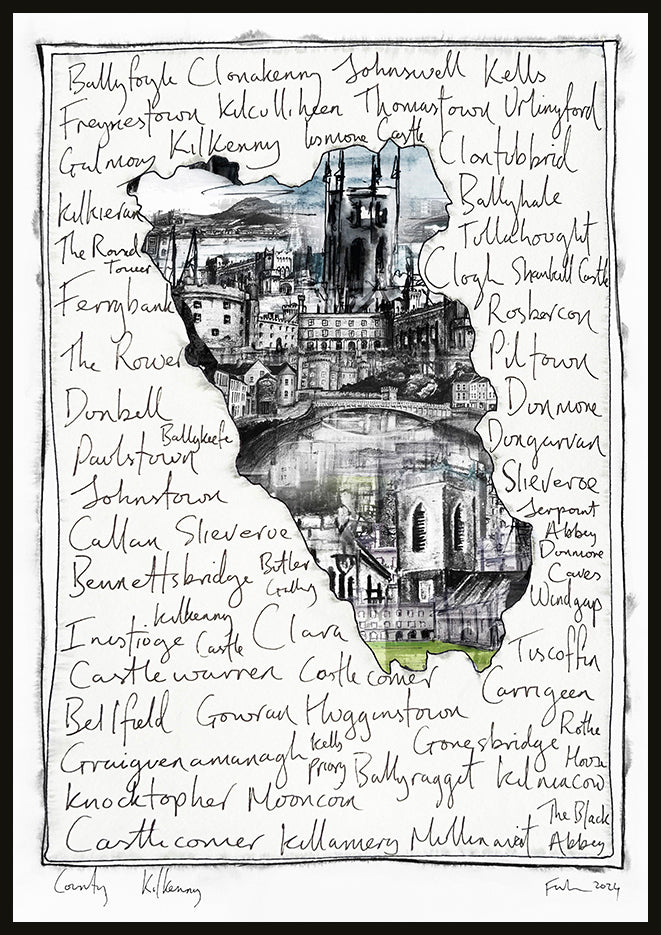 Ballyfoyle Clonakenny Johnswell Kells
Freynestown Kilculliheen Thomastown Urlingford
Galmoy Kilkenny Lismore Castle Clontubbrid
Kilkieran Ballyhale
The Round Tower Tullahought
Clogh Shankill Castle
Ferrybank Rosbercon
The Rower Piltown
Dunbell Dunmore
Ballykeefe
Paulstown Dungarvan
Johnstown Slieveroe
Serpoint Abbey
Callan Slieveroe Dunmore Caves
Bennettsbridge Butler Gallery Windgap
Inistioge Kilkenny Castle Clara Tuscoffin
Castlewarren Castlecomer Carrigeen
Bellfield Gowran Hugginstown Rothe House
Graiguenamanagh Kells Priory Gonesbridge
Ballyragget Kilmacow
Knocktopher Mooncoin The Black Abbey
Castlecomer Killamery Mullinavat
County Kilkenny
2024